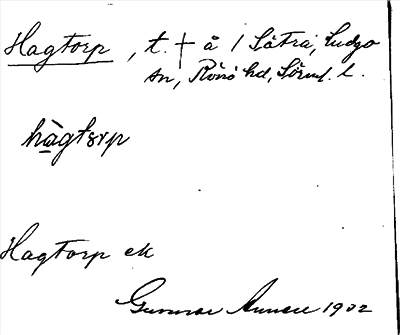 Hagtorp, t. † å 1 Sätra, Ludgo
sn, Rönö hd, Sörml. l.
hàgtɷrp
Hagtorp ek
Gunnar 1902